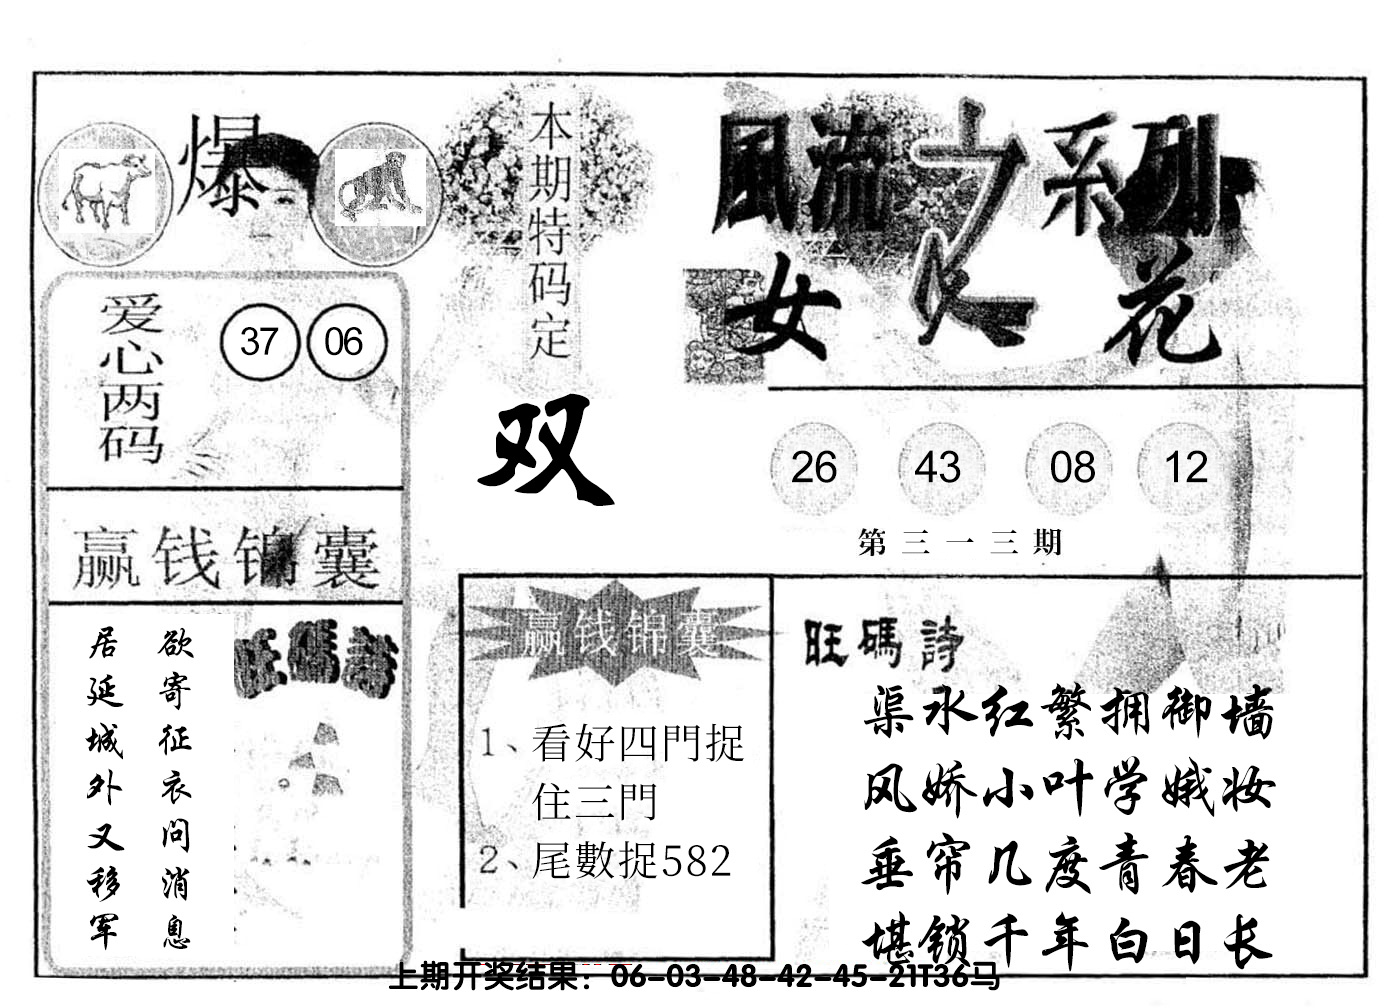 爆
本期特码定
双
風流之系列
女人花
爱心两码
37 06
26 43 08 12
第三一三期
赢钱锦囊
欲寄征衣问消息
居延城外又移军
旺碼詩
赢钱锦囊
1、看好四門捉
住三門
2、尾數捉582
旺碼詩
渠水红繁拥御墙
风娇小叶学娥妆
垂帘几度青春老
堪锁千年白日长
上期开奖结果：06-03-48-42-45-21T36马